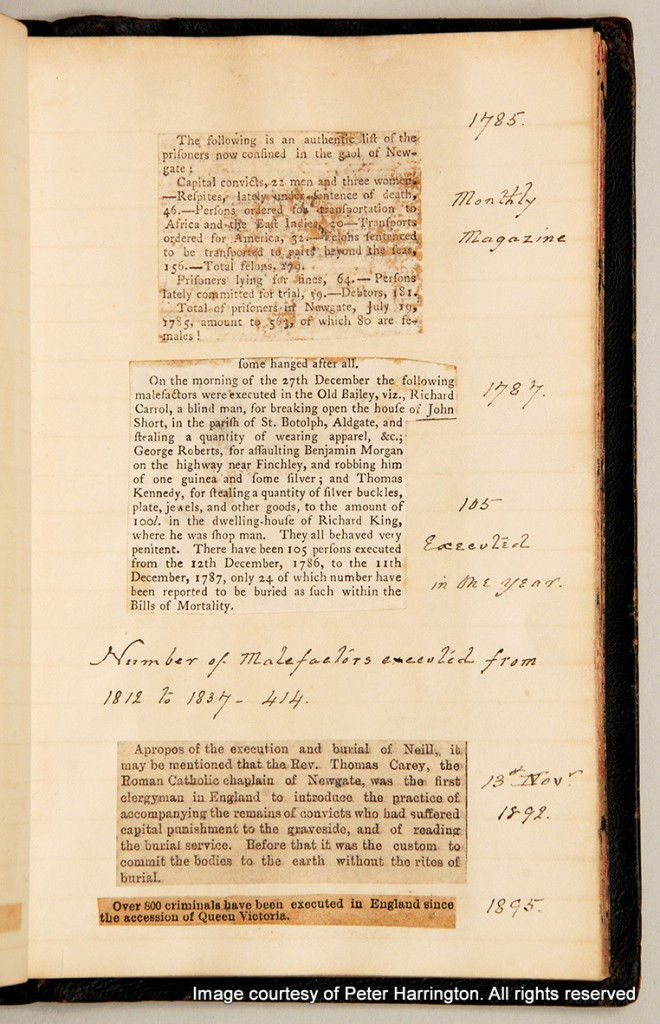 1785.
The following is an authentic liſt of the
priſoners now confined in the gaol of New-
gate :
Capital convicts, 22 men and three women.
—Reſpites, lately under ſentence of death,
46.—Perſons ordered for tranſportation to
Africa and the Eaſt Indies, 20—Tranſports
ordered for America, 32.—Felons ſentenced
to be tranſported to parts beyond the ſeas,
156.—Total felons, 279.
Priſoners lying for fines, 64.—Perſons
lately committed for trial, 19.—Debtors, 181.
Total of priſoners in Newgate, July 19,
1785, amount to 563, of which 80 are fe-
males !
Monthly
Magazine
ſome hanged after all.
On the morning of the 27th December the following
malefactors were executed in the Old Bailey, viz., Richard
Carrol, a blind man, for breaking open the houſe of John
Short, in the pariſh of St. Botolph, Aldgate, and
ſtealing a quantity of wearing apparel, &c.;
George Roberts, for aſſaulting Benjamin Morgan
on the highway near Finchley, and robbing him
of one guinea and ſome ſilver; and Thomas
Kennedy, for ſtealing a quantity of ſilver buckles,
plate, jewels, and other goods, to the amount of
100l. in the dwelling-houſe of Richard King,
where he was ſhop man. They all behaved very
penitent. There have been 105 perſons executed
from the 12th December, 1786, to the 11th
December, 1787, only 24 of which number have
been reported to be buried as ſuch within the
Bills of Mortality.
1787.
105
Executed
in the year.
Number of Malefactors executed from
1812 to 1837 - 414.
Apropos of the execution and burial of Neill, it
may be mentioned that the Rev. Thomas Carey, the
Roman Catholic chaplain of Newgate, was the first
clergyman in England to introduce the practice of
accompanying the remains of convicts who had suffered
capital punishment to the graveside, and of reading
the burial service. Before that it was the custom to
commit the bodies to the earth without the rites of
burial.
Novr
1892.
Over 800 criminals have been executed in England since
the accession of Queen Victoria.
1895.
Image courtesy of Peter Harrington. All rights reserved